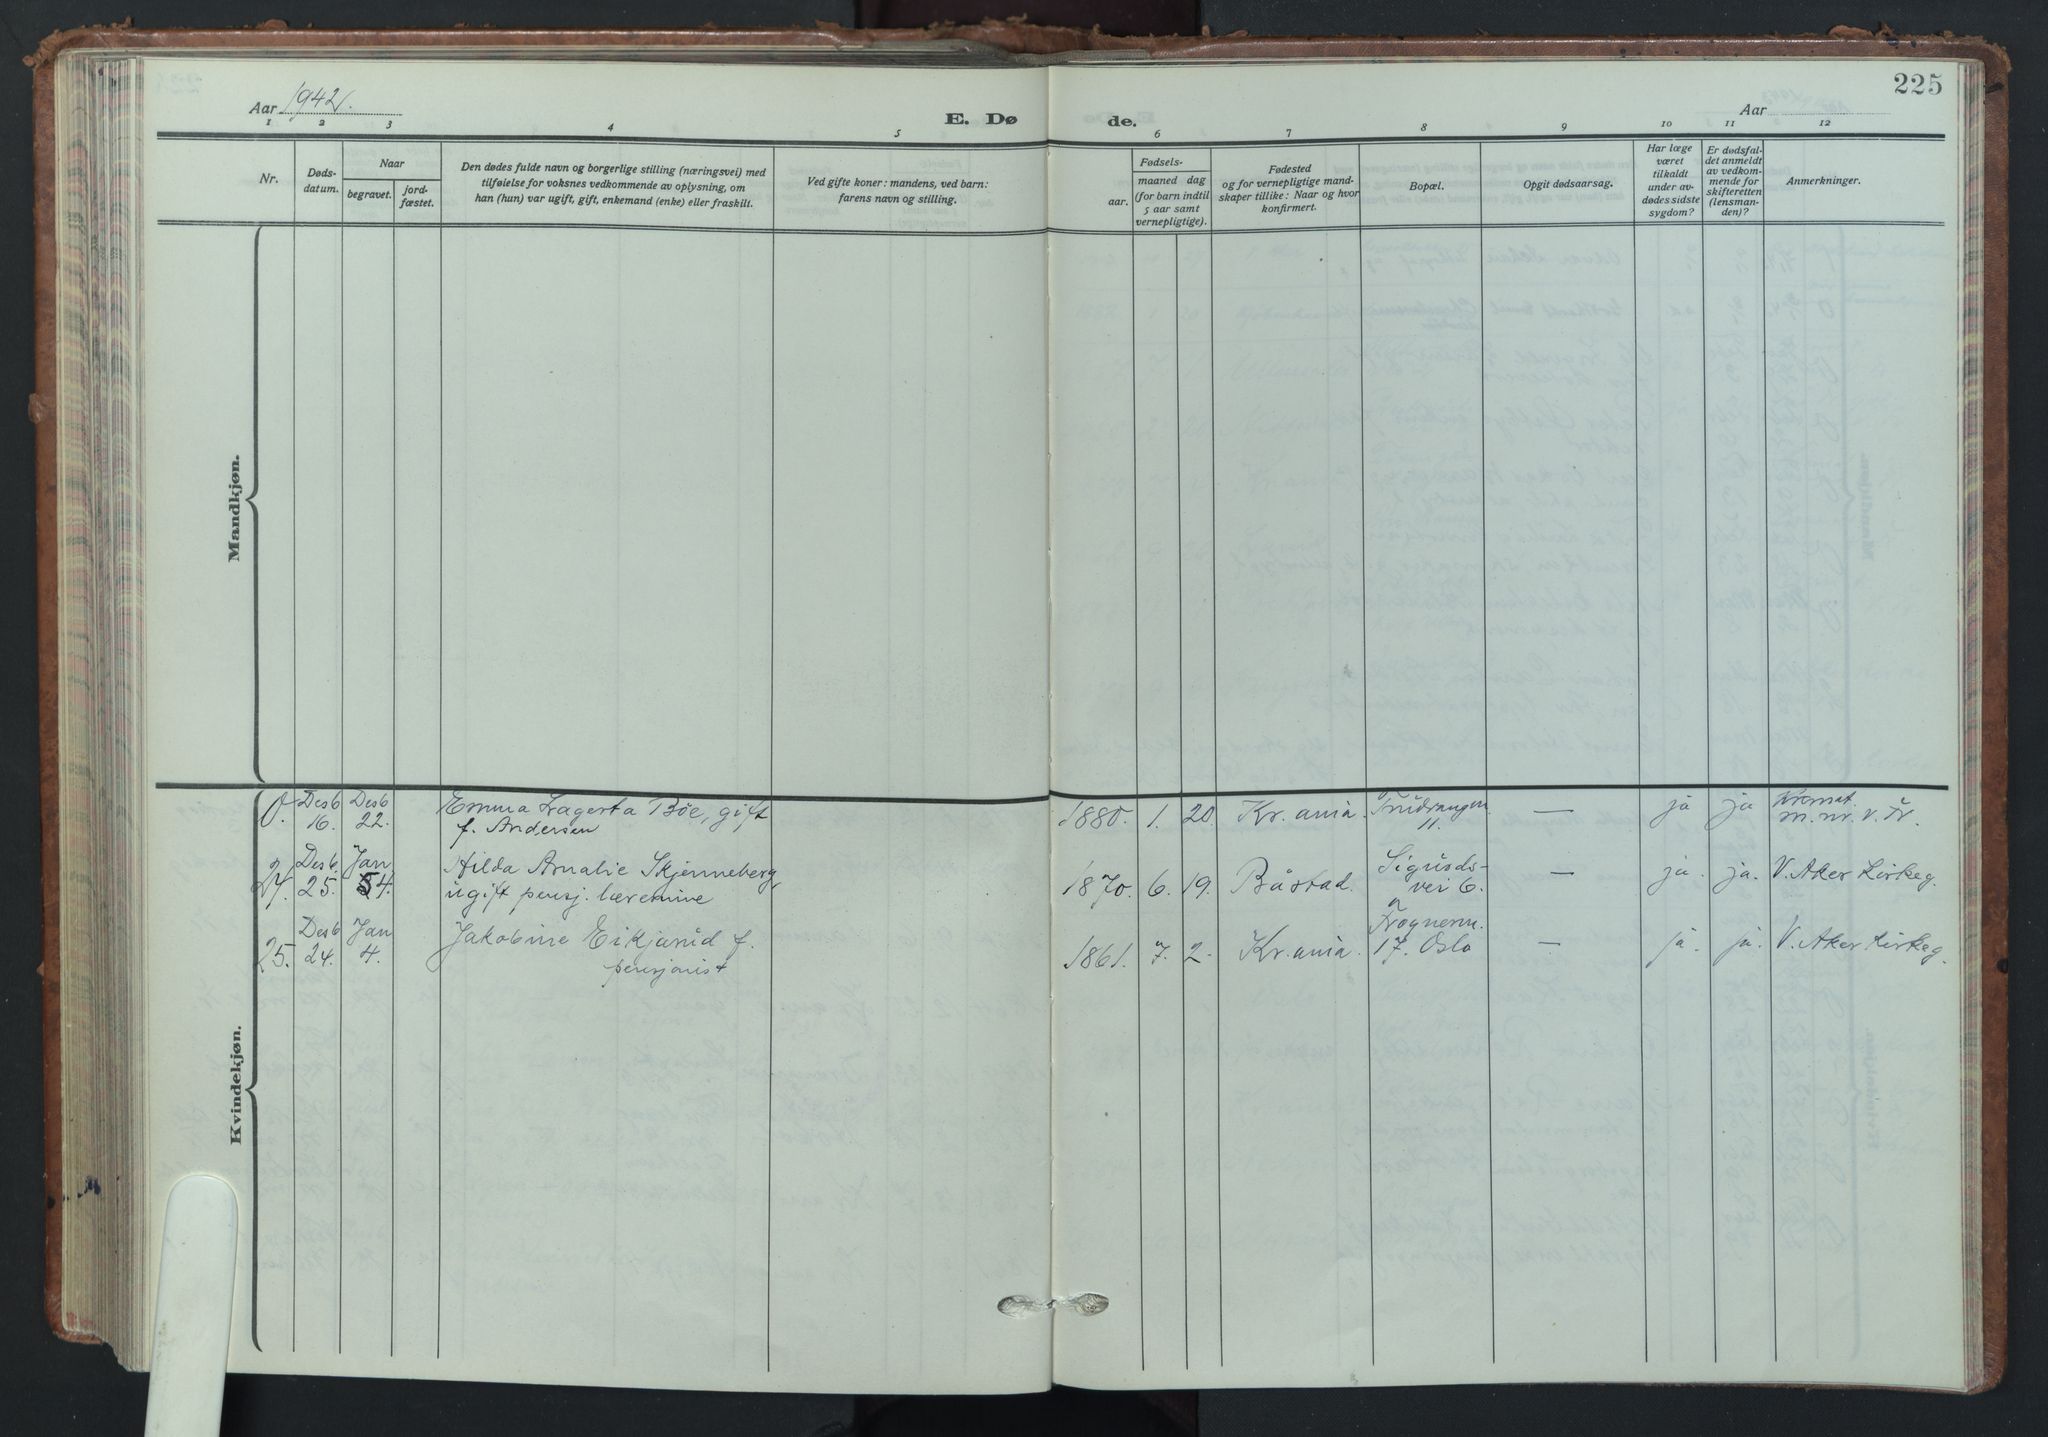 225
Aar 1942.
E. Dø
de.
Aar
1 2 3 4 5
6 7 8 9 10 11 12
Nr.
Døds-
datum.
Naar
begravet.
jord-
fæstet.
Den dødes fulde navn og borgerlige stilling (næringsvei) med
tilføielse for voksnes vedkommende av oplysning, om
han (hun) var ugift, gift, enkemand (enke) eller fraskilt.
Ved gifte koner: mandens, ved barn:
farens navn og stilling.
Fødsels-
aar.
maaned dag
(for barn indtil
5 aar samt
vernepligtige).
Fødested
og for vernepligtige mand-
skaper tillike: Naar og hvor
konfirmert.
Bopæl.
Opgit dødsaarsag.
Har læge
været
tilkaldt
under av-
dødes sidste
sygdom?
Er dødsfal-
det anmeldt
av vedkom-
mende for
skifteretten
(lensman-
den)?
Anmerkninger.
Mandkjøn.
Kvindekjøn.
0. Des 16. Des 22. Emma Lagerta Böe, gift
f. Andersen
1880. 1. 20. Kr.ania. 11. — ja ja Kremat.
m. nr. v. Fr.
24. Des 25. Jan 4. Hilda Amalie Skjenneberg,
ugift pensj. lærerinne
1870. 6. 19. Båstad. Sigurds-
vei 6. — ja. ja. V. Aker Kirkeg.
25. Des 24. Jan 4. Jakobine Eikjarud f.
pensjonist
1861. 7. 2. Kr.ania. Frognerv.
17. Oslo — ja. ja. V. Aker Kirkeg.